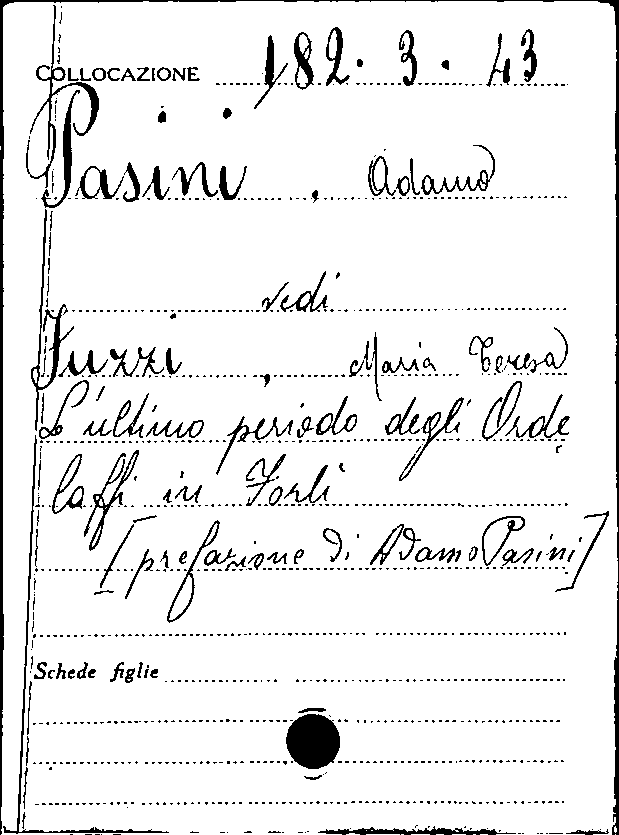 COLLOCAZIONE 182. 3. 43
Pasini, Adamo
vedi
Fuzzi, Maria Teresa
L'ultimo periodo degli Orde
laffi in Forlì
[prefazione di Adamo Pasini]
Schede figlie